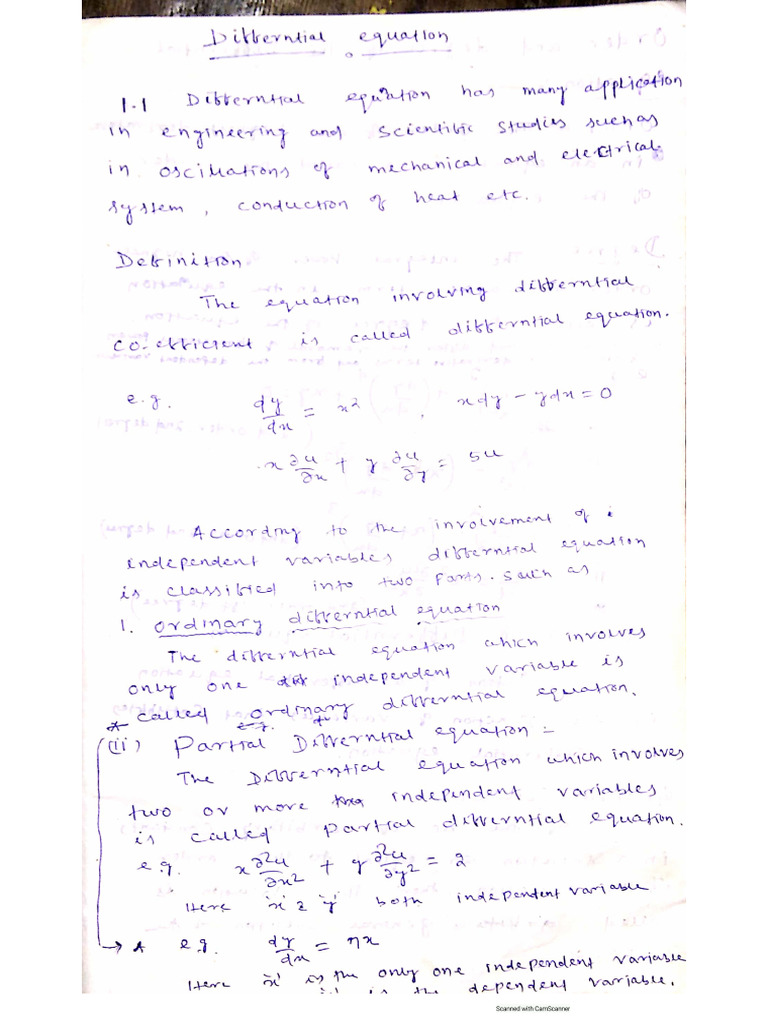 Differntial equation
1.1 Differntial equation has many application
in engineering and scientific studies such as
in oscillations of mechanical and electrical
system, conduction of heat etc.
Definition
The equation involving differntial
co-efficient is called differntial equation.
e.g. dy/dx = x², xdy - ydx = 0
x ∂u/∂x + y ∂u/∂y = 5u
According to the involvement of
independent variables differntial equation
is classified into two parts. such as
1. ordinary differntial equation
The differntial equation which involves
only one independent variable is
called ordinary differntial equation.
e.g.
(ii) Partial Differntial equation =
The Differntial equation which involves
two or more independent variables
is called partial differntial equation.
e.g. x ∂²u/∂x² + y ∂²u/∂y² = 2
Here 'x' & 'y' both independent variable
e.g. dy/dx = nx
Here 'x' is the only one independent variable
is the dependent variable.
Scanned with CamScanner